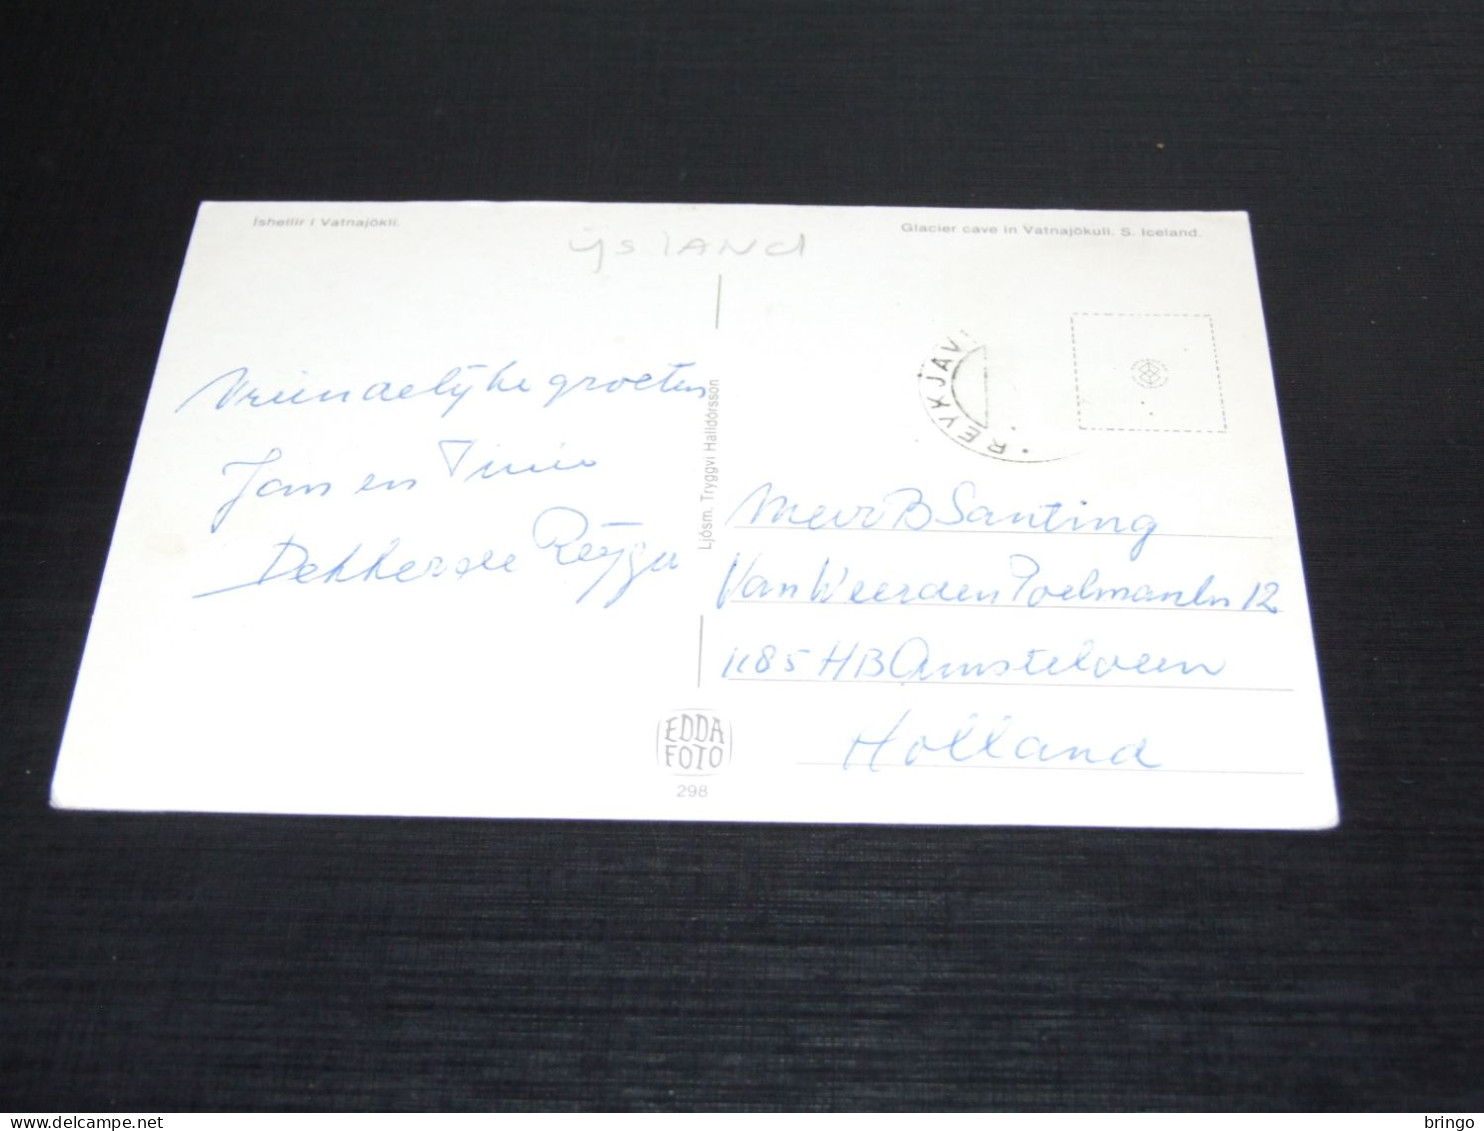 Íshellir í Vatnajökli.
Glacier cave in Vatnajökull. S. Iceland.
ijsland
REYKJAVÍ
Vriendelijke groeten
Jan en Tinie
Dekker de
Ljósm. Tryggvi Halldórsson
Mevr B Santing
Van Weerden Poelmanln 12
1185 HB Amstelveen
Holland
EDDA
FOTO
298
www.delcampe.net
bringo